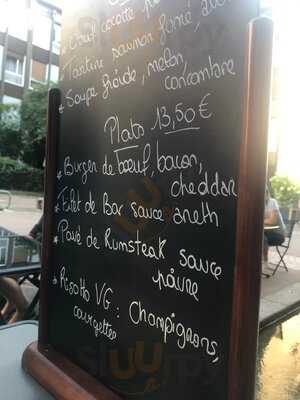 Oeuf cocotte
Tartine saumon fumé,
Soupe froide, melon,
concombre
Plats 13,50 €
* Burger de bœuf, bacon,
cheddar
* Filet de Bar sauce aneth
* Pavé de Rumsteak sauce
poivre
* Risotto VG : Champignons,
courgettes